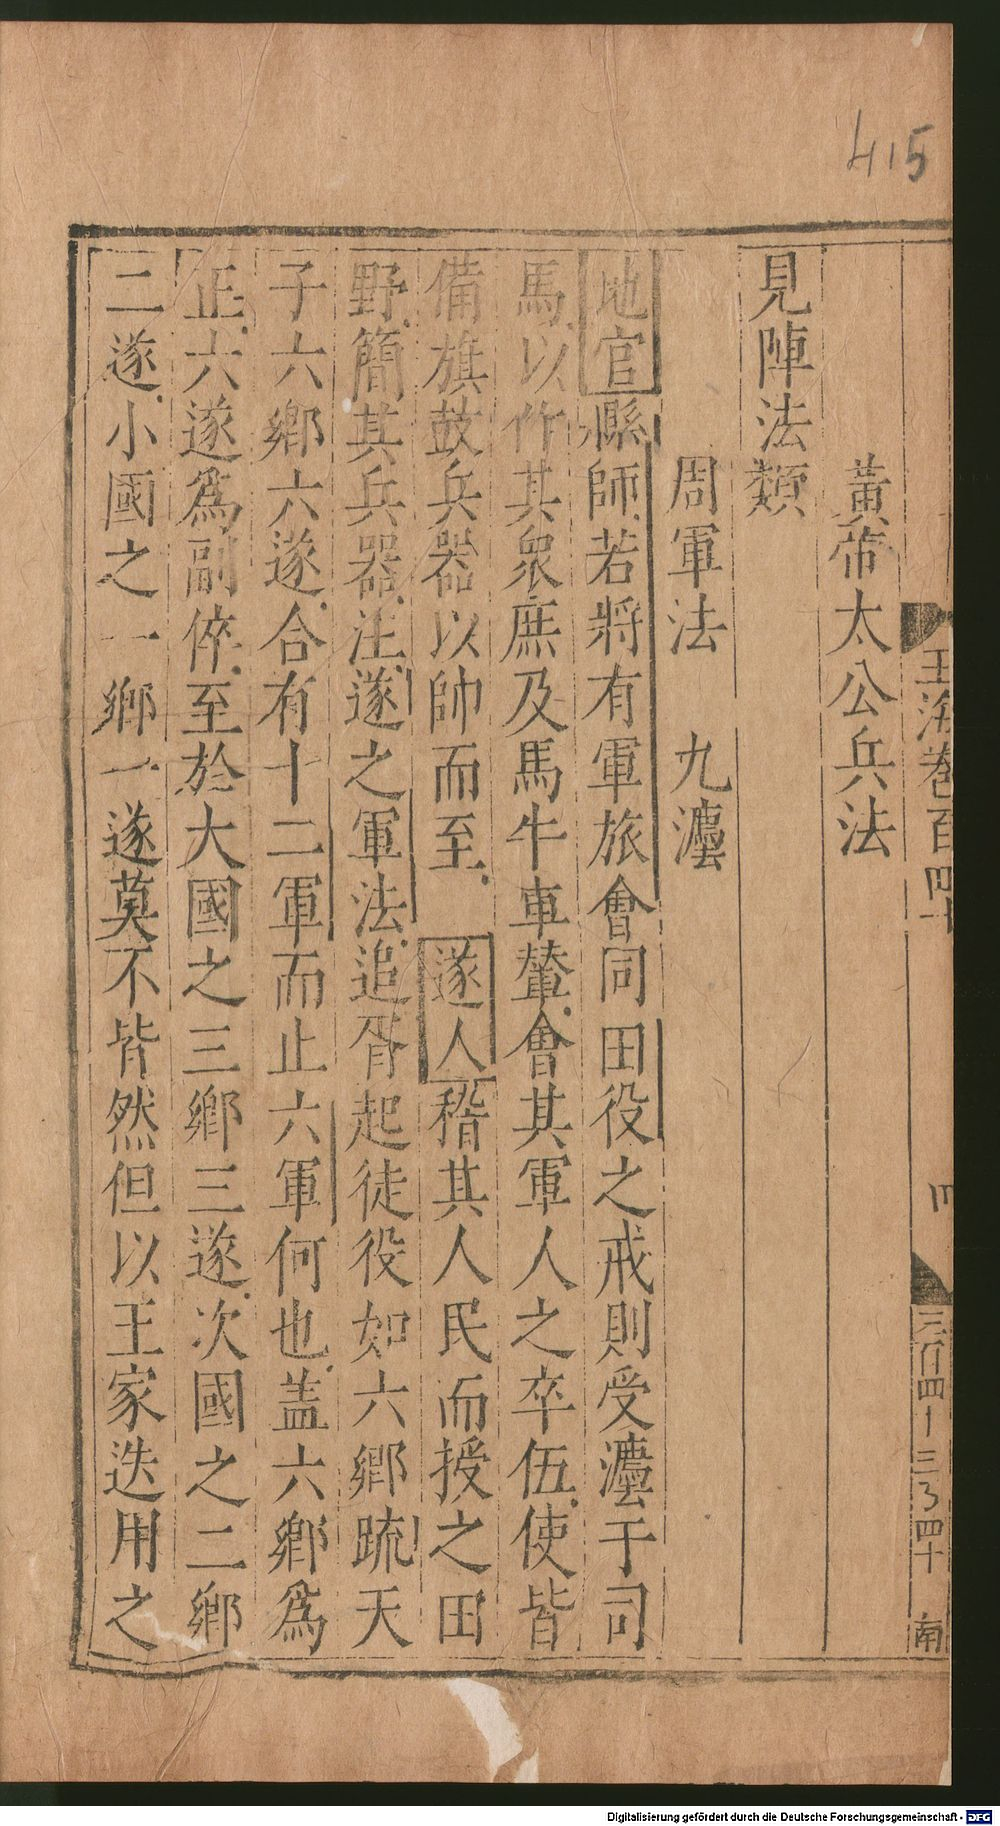 415
玉海卷百四十
四
三百四十三
四十
南
黃帝太公兵法
見陣法類
周軍法 九灋
地官縣師若將有軍旅會同田役之戒則受灋于司
馬以作其衆庶及馬牛車輦會其軍人之卒伍使皆
備旗鼓兵器以帥而至遂人稽其人民而授之田
野簡其兵器注遂之軍法追胥起徒役如六鄉疏天
子六鄉六遂合有十二軍而止六軍何也盖六鄉爲
正六遂爲副倅至於大國之三鄉三遂次國之二鄉
二遂小國之一鄉一遂莫不皆然但以王家迭用之
Digitalisierung gefördert durch die Deutsche Forschungsgemeinschaft - DFG